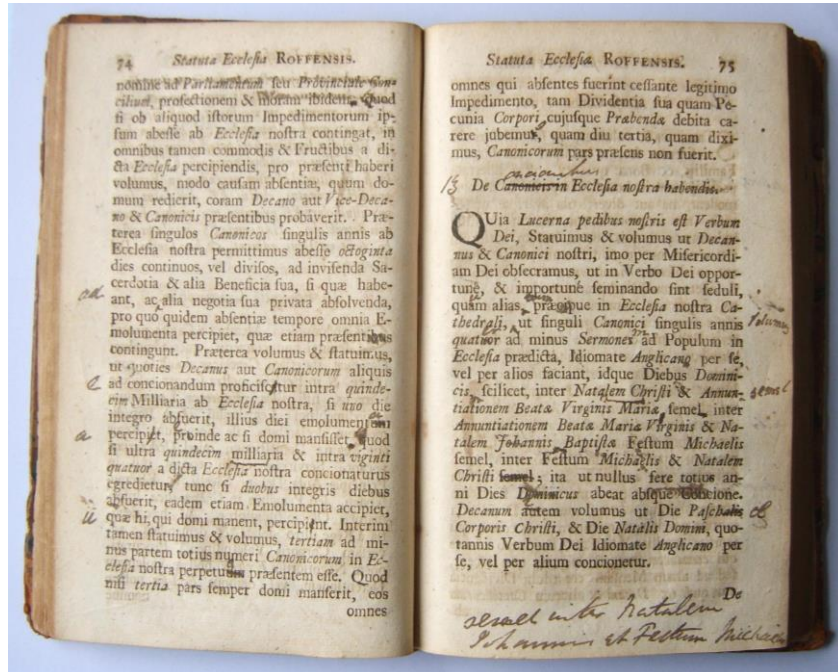 74 Statuta Ecclesiæ ROFFENSIS.
nomine ad Parliamentum seu Provinciale Con-
cilium, profectionem & moram ibidem. Quod
si ob aliquod istorum Impedimentorum ip-
sum abesse ab Ecclesia nostra contingat, in
omnibus tamen commodis & Fructibus a di-
cta Ecclesia percipiendis, pro præsenti haberi
volumus, modo causam absentiæ, quum do-
mum redierit, coram Decano aut Vice-Deca-
no & Canonicis præsentibus probaverit. Præ-
terea singulos Canonicos singulis annis ab
Ecclesia nostra permittimus abesse octoginta
dies continuos, vel divisos, ad invisenda Sa-
cerdotia & alia Beneficia sua, si quæ habe-
ad
ant, ac alia negotia sua privata absolvenda,
pro quo quidem absentiæ tempore omnia E-
molumenta percipiet, quæ etiam præsentibus
contingunt. Præterea volumus & statuimus,
ut quoties Decanus aut Canonicorum aliquis
e
ad concionandum proficiscitur intra quinde-
cim Milliaria ab Ecclesia nostra, si uno die
integro abfuerit, illius diei emolumentum
a
percipiet, proinde ac si domi mansisset, quod
si ultra quindecim milliaria & intra viginti
quatuor a dicta Ecclesia nostra concionaturus
egredietur, tunc si duobus integris diebus
abfuerit, eadem etiam Emolumenta accipiet,
ii
quæ hi, qui domi manent, percipient. Interim
tamen statuimus & volumus, tertiam ad mi-
nus partem totius numeri Canonicorum in Ec-
clesia nostra perpetuum præsentem esse. Quod
nisi tertia pars semper domi manserit, eos
omnes
Statuta Ecclesiæ ROFFENSIS. 75
omnes qui absentes fuerint cessante legitimo
Impedimento, tam Dividentia sua quam Pe-
cunia Corpori cujusque Præbendæ debita ca-
rere jubemus, quam diu tertia, quam dixi-
mus, Canonicorum pars præsens non fuerit.
13 De Canonicis in Ecclesia nostra habendis.
QUia Lucerna pedibus nostris est Verbum
Dei, Statuimus & volumus ut Decan-
nus & Canonici nostri, imo per Misericordi-
am Dei obsecramus, ut in Verbo Dei oppor-
tune, & importune seminando sint seduli,
quam alias, præcipue in Ecclesia nostra Ca-
thedrali, ut singuli Canonici singulis annis
quatuor ad minus Sermones ad Populum in
Ecclesia prædicta, Idiomate Anglicano per se,
vel per alios faciant, idque Diebus Domini-
cis, scilicet, inter Natalem Christi & Annun-
semel
tiationem Beatæ Virginis Mariæ, semel, inter
Annuntiationem Beatæ Mariæ Virginis & Na-
talem Johannis Baptistæ Festum Michaelis
semel, inter Festum Michaelis & Natalem
Christi semel; ita ut nullus fere totius an-
ni Dies Dominicus abeat absque Concione.
Decanum autem volumus ut Die Paschalis
Corporis Christi, & Die Natalis Domini, quo-
tannis Verbum Dei Idiomate Anglicano per
se, vel per alium concionetur.
De
semel inter Natalem
Johannis et Festum Michaelis